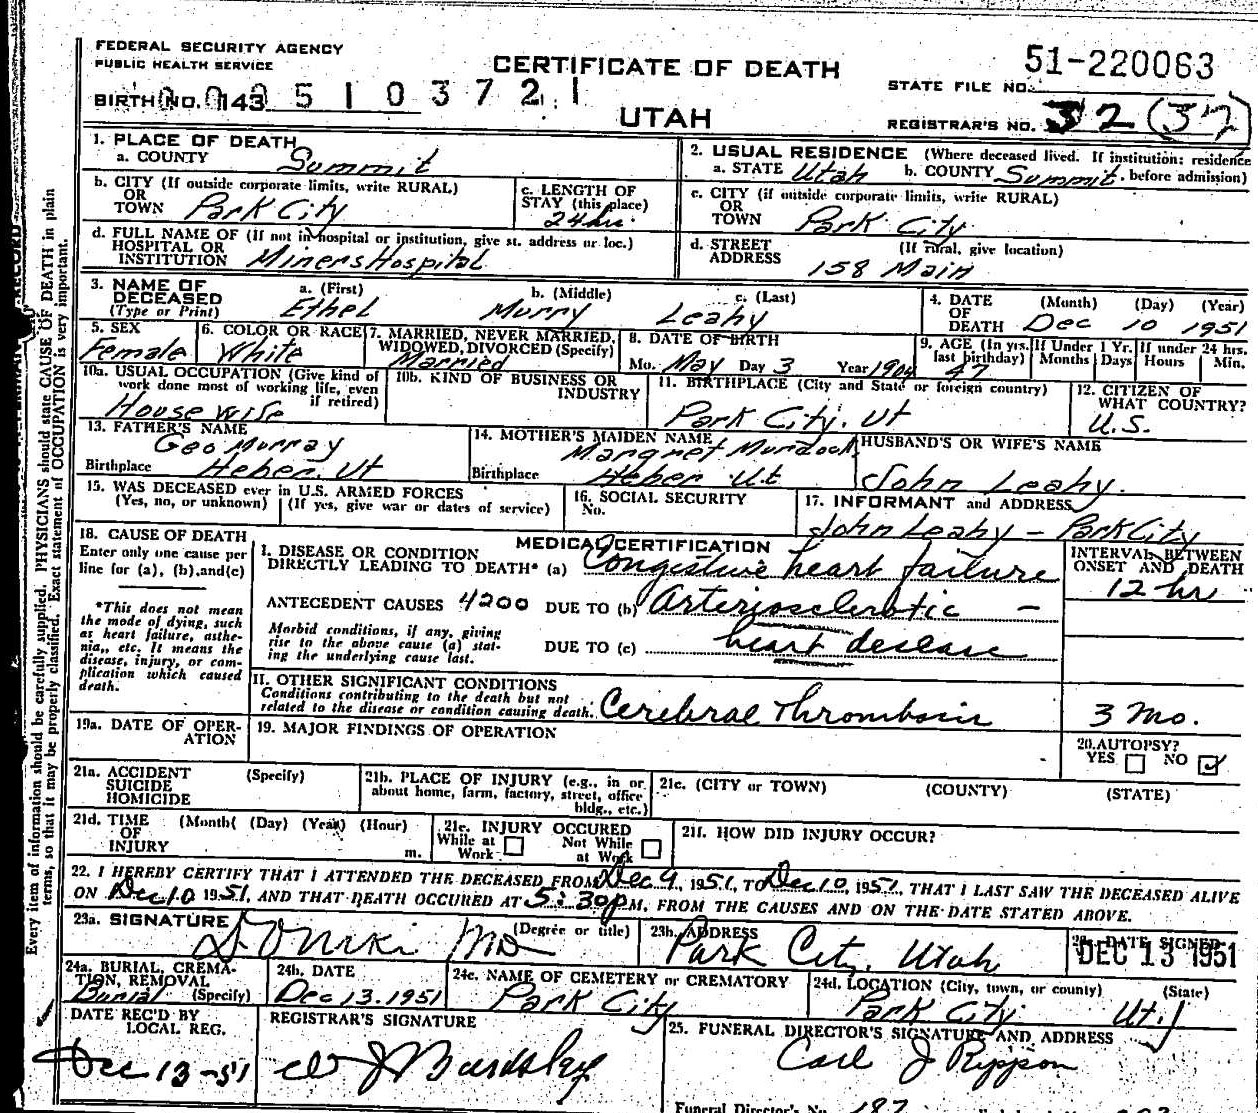 FEDERAL SECURITY AGENCY
PUBLIC HEALTH SERVICE
CERTIFICATE OF DEATH
51-220063
STATE FILE NO.
BIRTH NO. 143 0 5 1 0 3 7 2 1
UTAH
REGISTRAR'S NO. 32 (37)
1. PLACE OF DEATH
a. COUNTY Summit
2. USUAL RESIDENCE (Where deceased lived. If institution: residence
a. STATE Utah b. COUNTY Summit. before admission)
b. CITY (If outside corporate limits, write RURAL)
OR
TOWN Park City
c. LENGTH OF
STAY (this place)
24 hr.
c. CITY (if outside corporate limits, write RURAL)
OR
TOWN Park City.
d. FULL NAME OF (If not in hospital or institution, give st. address or loc.)
HOSPITAL OR
INSTITUTION Miners Hospital
d. STREET (If rural, give location)
ADDRESS
158 Main
3. NAME OF a. (First) b. (Middle) c. (Last)
DECEASED
(Type or Print) Ethel Murry Leahy
4. DATE (Month) (Day) (Year)
OF
DEATH Dec 10 1951
5. SEX
Female
6. COLOR OR RACE
White
7. MARRIED, NEVER MARRIED,
WIDOWED, DIVORCED (Specify)
Married
8. DATE OF BIRTH
Mo. May Day 3 Year 1904
9. AGE (In yrs.
last birthday)
47
If Under 1 Yr.
Months Days
If under 24 hrs.
Hours Min.
10a. USUAL OCCUPATION (Give kind of
work done most of working life, even
if retired)
House wife
10b. KIND OF BUSINESS OR
INDUSTRY
11. BIRTHPLACE (City and State or foreign country)
Park City, Ut
12. CITIZEN OF
WHAT COUNTRY?
U.S.
13. FATHER'S NAME
Geo Murray
Birthplace Heber. Ut
14. MOTHER'S MAIDEN NAME
Margret Murdock
Birthplace Heber Ut
HUSBAND'S OR WIFE'S NAME
John Leahy.
15. WAS DECEASED ever in U.S. ARMED FORCES
(Yes, no, or unknown) (If yes, give war or dates of service)
16. SOCIAL SECURITY
No.
17. INFORMANT and ADDRESS
John Leahy - Park City
18. CAUSE OF DEATH
Enter only one cause per
line for (a), (b), and (c)
*This does not mean
the mode of dying, such
as heart failure, asthe-
nia,, etc. It means the
disease, injury, or com-
plication which caused
death.
MEDICAL CERTIFICATION
I. DISEASE OR CONDITION
DIRECTLY LEADING TO DEATH* (a) Congestive heart failure
ANTECEDENT CAUSES 4200 DUE TO (b) Arteriosclerotic -
Morbid conditions, if any, giving
rise to the above cause (a) stat-
ing the underlying cause last.
DUE TO (c) heart desease
INTERVAL BETWEEN
ONSET AND DEATH
12 hr
II. OTHER SIGNIFICANT CONDITIONS
Conditions contributing to the death but not
related to the disease or condition causing death. Cerebral Thrombosis
3 Mo.
19a. DATE OF OPER-
ATION
19. MAJOR FINDINGS OF OPERATION
20. AUTOPSY?
YES NO ✓
21a. ACCIDENT (Specify)
SUICIDE
HOMICIDE
21b. PLACE OF INJURY (e.g., in or
about home, farm, factory, street, office
bldg., etc.)
21c. (CITY or TOWN) (COUNTY) (STATE)
21d. TIME (Month( (Day) (Year) (Hour)
OF
INJURY m.
21e. INJURY OCCURED
While at Not While
Work at Work
21f. HOW DID INJURY OCCUR?
22. I HEREBY CERTIFY THAT I ATTENDED THE DECEASED FROM Dec 9, 1951, TO Dec 10, 1951, THAT I LAST SAW THE DECEASED ALIVE
ON Dec 10 1951, AND THAT DEATH OCCURED AT 5:30 P.M. FROM THE CAUSES AND ON THE DATE STATED ABOVE.
23a. SIGNATURE (Degree or title)
MD
23b. ADDRESS
Park City, Utah
DATE SIGNED
DEC 13 1951
24a. BURIAL, CREMA-
TION, REMOVAL
Burial (Specify)
24b. DATE
Dec 13. 1951
24c. NAME OF CEMETERY or CREMATORY
Park City
24d. LOCATION (City, town, or county) (State)
Park City Ut.
DATE REC'D BY
LOCAL REG.
Dec 13-51
REGISTRAR'S SIGNATURE
25. FUNERAL DIRECTOR'S SIGNATURE AND ADDRESS
Carl J Rippon
Funeral Director's No. 187
Every item of information should be carefully supplied. PHYSICIANS should state CAUSE OF DEATH in plain
terms, so that it may be properly classified. Exact statement of OCCUPATION is very important.